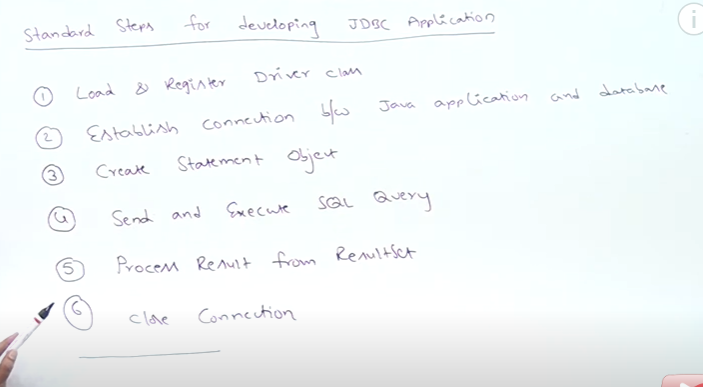 Standard Steps for developing JDBC Application
① Load & Register Driver class
② Establish connection b/w Java application and database
③ Create Statement Object
④ Send and Execute SQL Query
⑤ Process Result from ResultSet
⑥ Close Connection